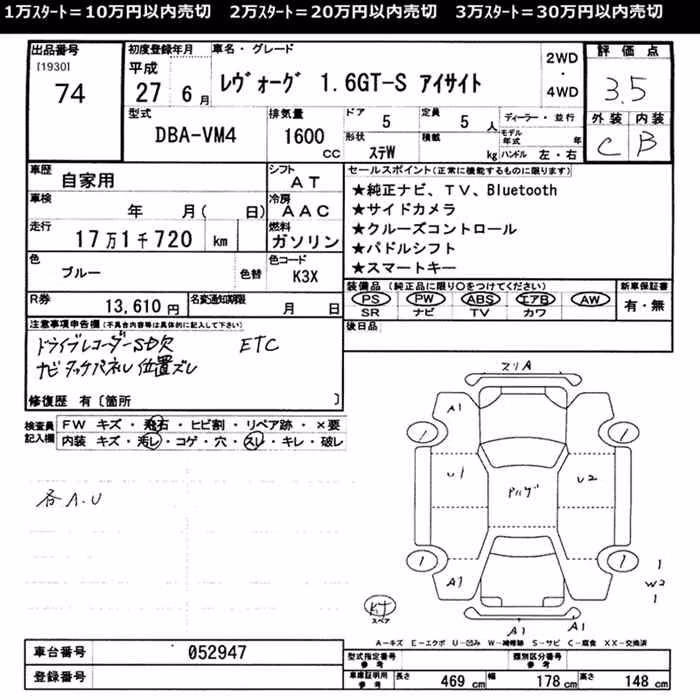 1万ｽﾀｰﾄ＝10万円以内売切　2万ｽﾀｰﾄ＝20万円以内売切　3万ｽﾀｰﾄ＝30万円以内売切
出品番号
[1930]
74
初度登録年月
平成
27 6月
車名・グレード
ﾚｳﾞｫｰｸﾞ 1.6GT-S ｱｲｻｲﾄ
2WD
・
4WD
評価点
3.5
外装 内装
C B
型式
DBA-VM4
排気量
1600 CC
ドア
5
定員
5 人
形状
ｽﾃW
積載
kg
ディーラー・並行
モデル年式 年
ハンドル 左・右
車歴
自家用
シフト
AT
車検
年 月( 日)
冷房
AAC
走行
17万1千720 km
燃料
ガソリン
色
ブルー
色替
色コード
K3X
R券
13,610円
名変通知期限
月 日
セールスポイント(正常に機能するものに限ります)
★純正ナビ、TV、Bluetooth
★サイドカメラ
★クルーズコントロール
★パドルシフト
★スマートキー
装備品(純正品に限り○をつけてください)
PS PW ABS エアB AW
SR ナビ TV カワ
新車保証書
有・無
後日品
注意事項申告欄(不具合内容等は具体的に記入して下さい)
ドライブレコーダーSD欠 ETC
ナビタッチパネル位置ズレ
修復歴 有〔箇所 〕
検査員記入欄
FW キズ・飛石・ヒビ割・リペア跡・×要
内装 キズ・汚レ・コゲ・穴・スレ・キレ・破レ
各A.U
スリA
A1
1 1
U1 U2
1 1
A1
1
W2
1
スペア
A1 A1
A－キズ E－エクボ U－凹み W－補修跡 S－サビ C－腐食 XX－交換済
車台番号
052947
登録番号
型式指定番号
参考
類別区分番号
参考
車庫証明用
参考
長さ 469 cm 幅 178 cm 高さ 148 cm